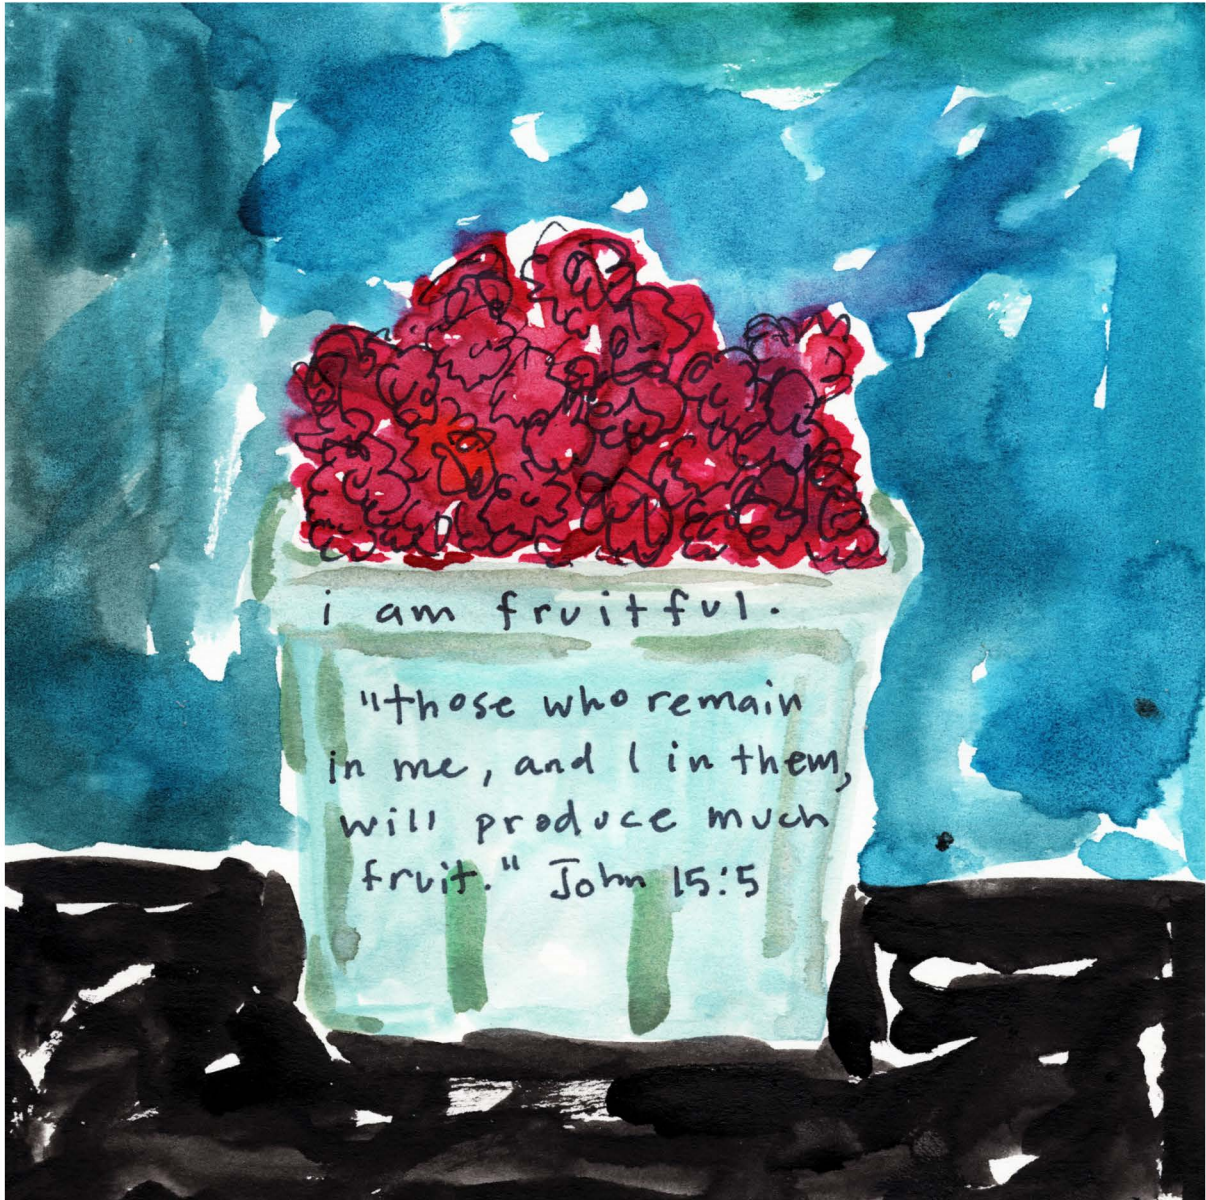 i am fruitful.
"those who remain
in me, and I in them,
will produce much
fruit." John 15:5